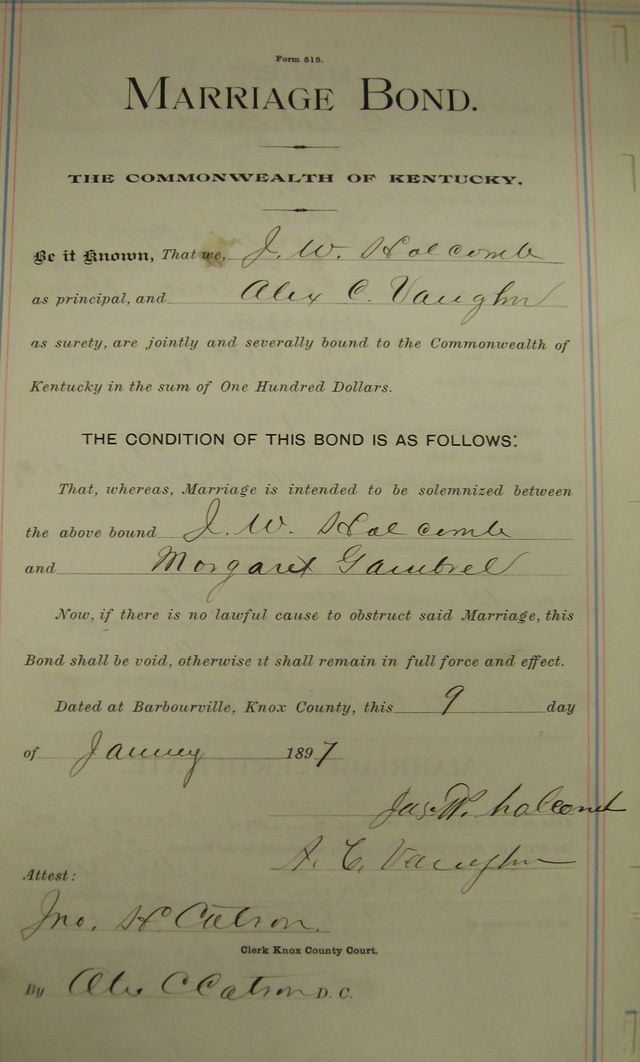 Form 515.
MARRIAGE BOND.
THE COMMONWEALTH OF KENTUCKY.
Be it Known, That we, J. W. Holcomb
as principal, and Alex C. Vaughn
as surety, are jointly and severally bound to the Commonwealth of
Kentucky in the sum of One Hundred Dollars.
THE CONDITION OF THIS BOND IS AS FOLLOWS:
That, whereas, Marriage is intended to be solemnized between
the above bound J. W. Holcomb
and Morgaret Gambrel
Now, if there is no lawful cause to obstruct said Marriage, this
Bond shall be void, otherwise it shall remain in full force and effect.
Dated at Barbourville, Knox County, this 9 day
of January 1897
Jas. W. Holcomb
A. C. Vaughn
Attest:
Jno. H. Catron.
Clerk Knox County Court.
By Alex C Catron D. C.